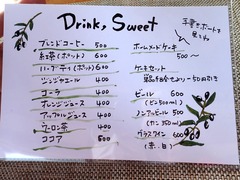 Drink, Sweet
ブレンドコーヒー 500
紅茶(ポット) 600
ハーブティ(ポット) 600
ジンジャエール 400
コーラ 400
オレンジジュース 400
アップルジュース 400
ウーロン茶 400
ココア 500
ホームメイドケーキ
500～
ケーキセット
単品合計より-50円引き
ビール 600
(ビン500ml)
ノンアルビール 500
(カン350ml)
グラスワイン 600
(赤、白)